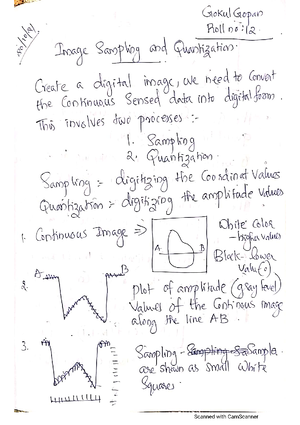 Gokul Gopan
Roll no: 12
Image Sampling and Quantization.
Create a digital image, we need to Convert
the Continuous Sensed data into digital form.
This involves two processes :-
1. Sampling
2. Quantization.
Sampling :- digitizing the Coordinat values
Quantization :- digitizing the amplitude values
1. Continuous Image ⇒
A B
White Color
- higher values
Black - lower
Valu(0)
2.
A B
plot of amplitude (gray level)
Values of the Continous image
along the line AB.
3.
Sampling - Sampling Sample
are shown as small white
Squares.
Scanned with CamScanner